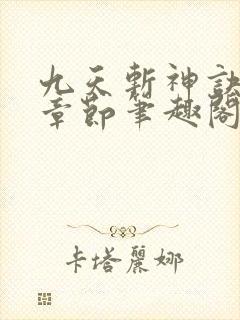 九天斬神訣
章節筆趣閣
卡塔麗娜